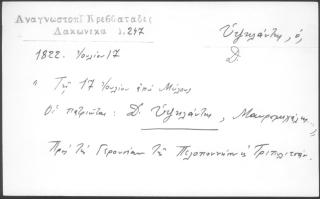 Αναγνωστοπ Κρεββατάδες
Λακωνικά σ.247
Υψηλάντης, ὁ,
Δ.
1822. Ιουλίου 17
" Τῇ 17 Ιουλίου ἀπό Μύλους
Οἱ πατριῶται: Δ. Υψηλάντης, Μαυρομιχάλης
Πρός τήν Γερουσίαν τῆς Πελοποννήσου Τριπολιτσάν.